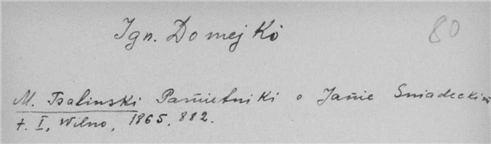 Ign. Domejko
80
M. Balinski Pamietniki o Janie Sniadeckim
t. I, Wilno, 1865. 882.